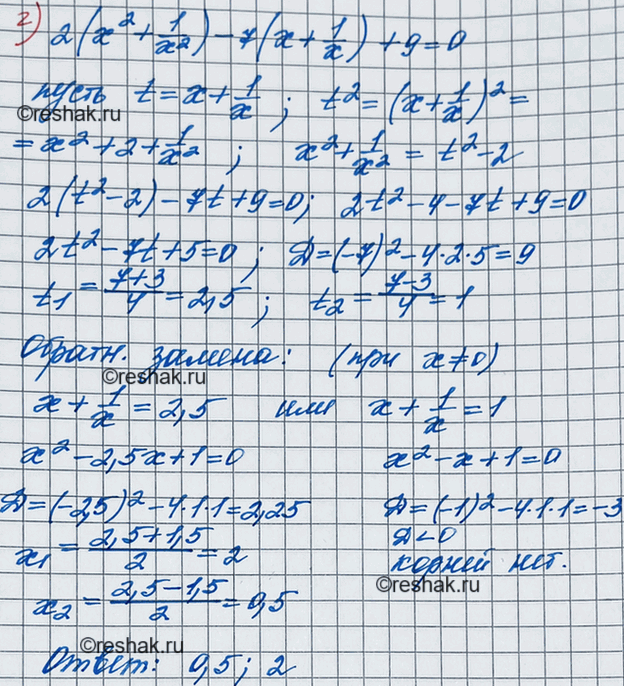 г) 2(x² + 1/x²) - 7(x + 1/x) + 9 = 0
пусть t = x + 1/x ; t² = (x + 1/x)² =
©reshak.ru
= x² + 2 + 1/x² ; x² + 1/x² = t² - 2
2(t² - 2) - 7t + 9 = 0; 2t² - 4 - 7t + 9 = 0
2t² - 7t + 5 = 0 ; D = (-7)² - 4·2·5 = 9
t₁ = (7+3)/4 = 2,5 ; t₂ = (7-3)/4 = 1
Обратн. замена: (при x ≠ 0)
©reshak.ru
x + 1/x = 2,5 или x + 1/x = 1
x² - 2,5x + 1 = 0 x² - x + 1 = 0
D = (-2,5)² - 4·1·1 = 2,25 D = (-1)² - 4·1·1 = -3
x₁ = (2,5+1,5)/2 = 2 D < 0
корней нет.
©reshak.ru
x₂ = (2,5-1,5)/2 = 0,5
©reshak.ru
Ответ: 0,5; 2